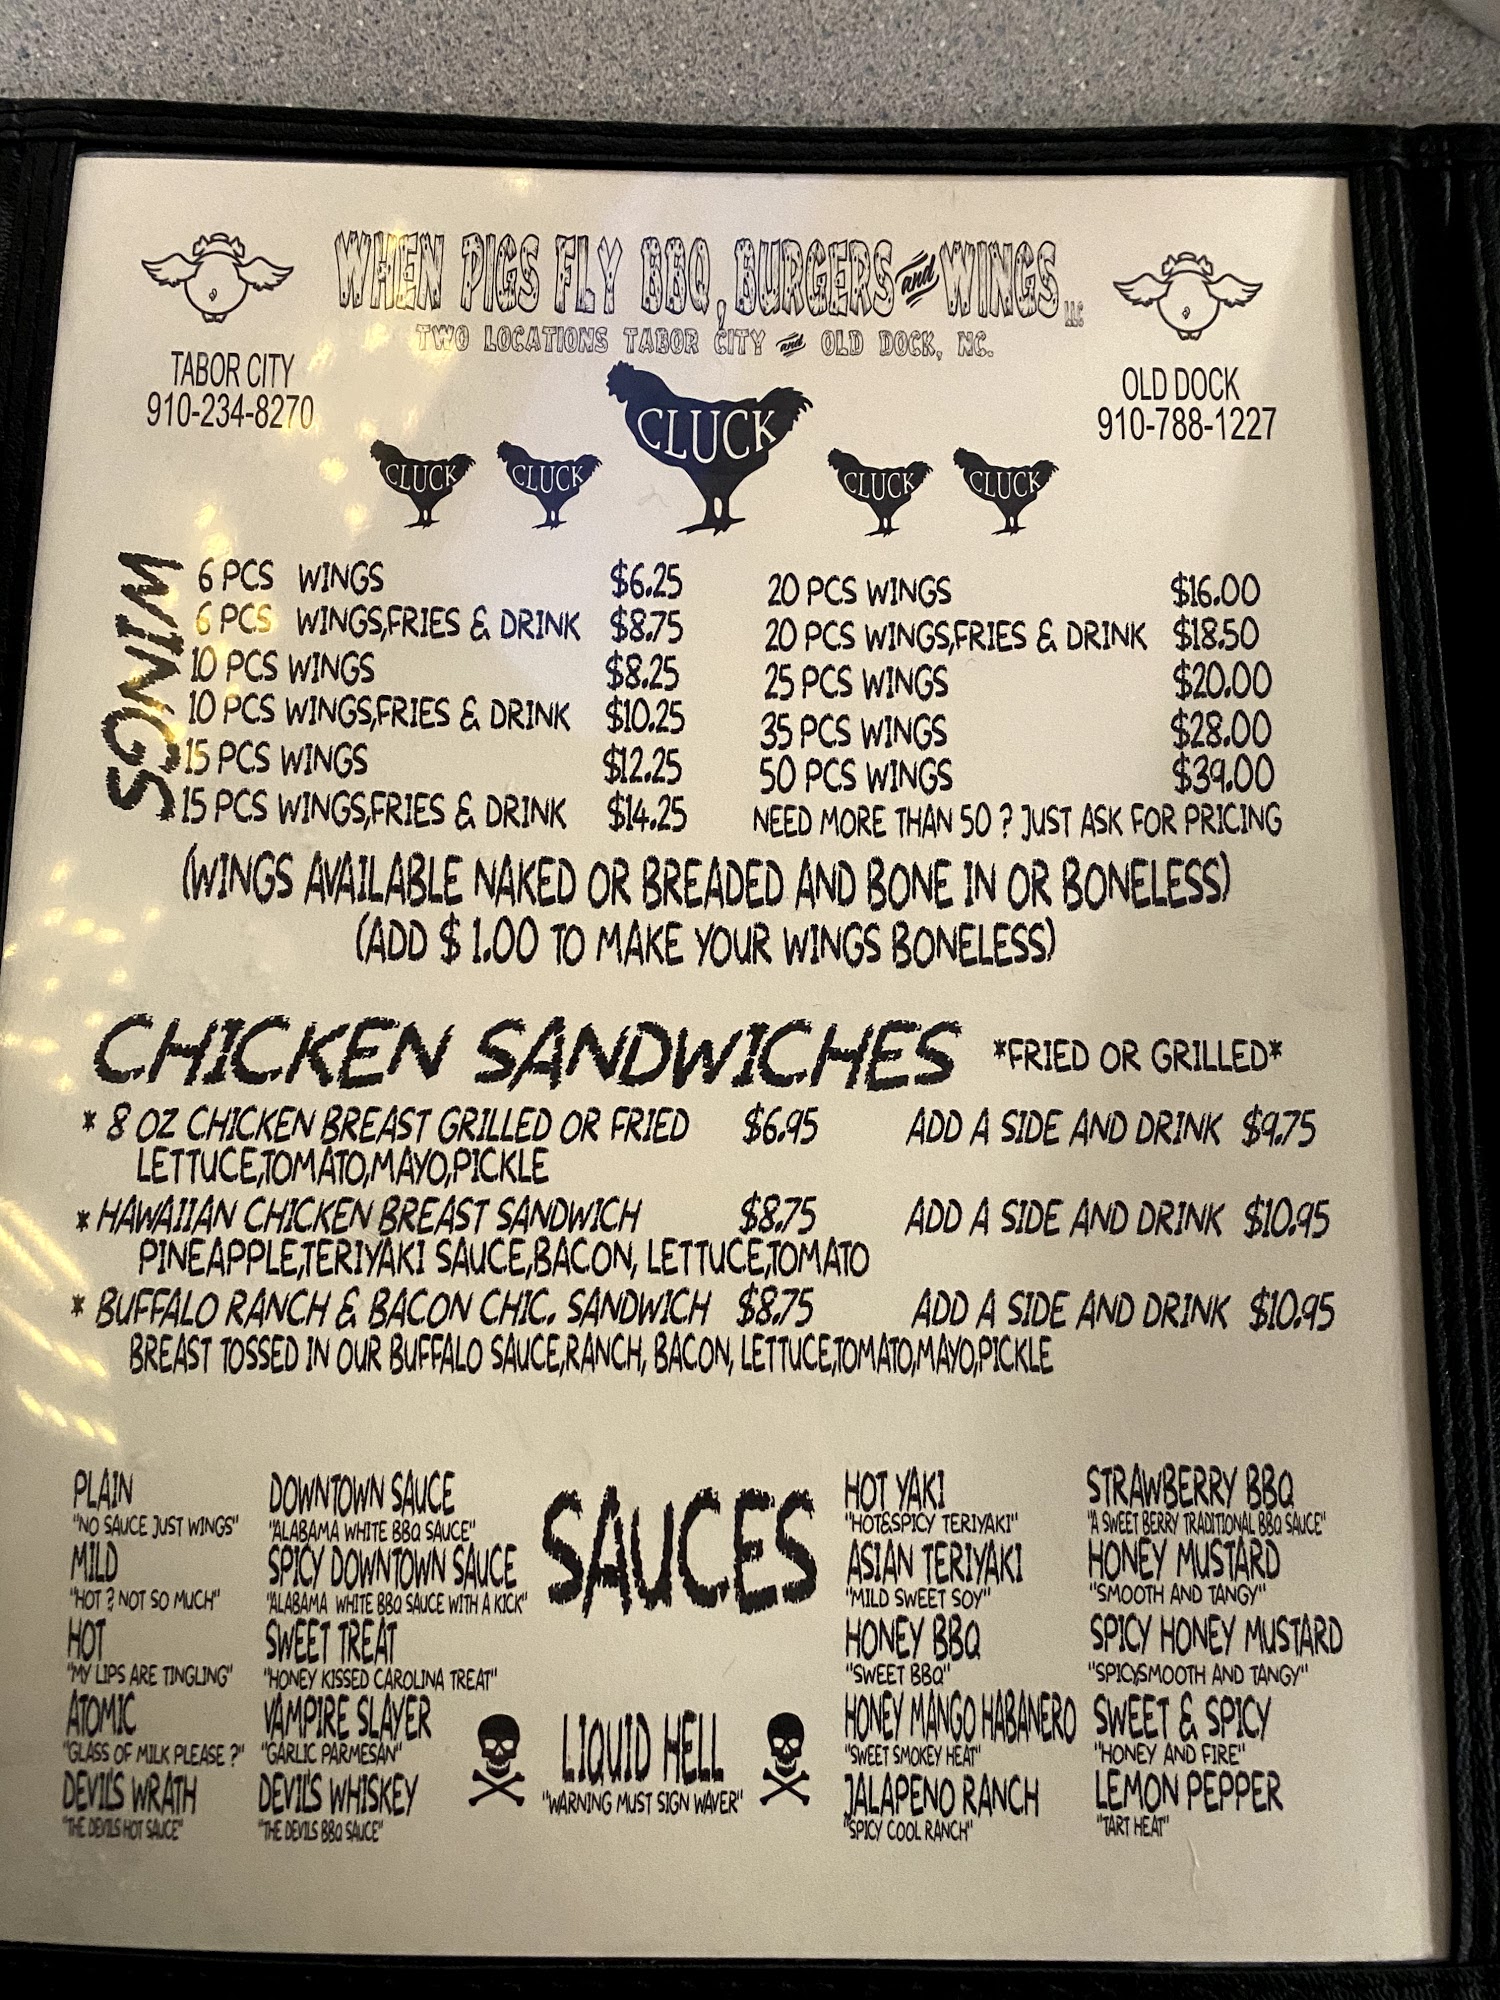 WHEN PIGS FLY BBQ, BURGERS and WINGS LLC
TWO LOCATIONS TABOR CITY and OLD DOCK, NC.
TABOR CITY
910-234-8270
OLD DOCK
910-788-1227
CLUCK
CLUCK
CLUCK
CLUCK
CLUCK
WINGS
6 PCS WINGS $6.25
6 PCS WINGS,FRIES & DRINK $8.75
10 PCS WINGS $8.25
10 PCS WINGS,FRIES & DRINK $10.25
15 PCS WINGS $12.25
15 PCS WINGS,FRIES & DRINK $14.25
20 PCS WINGS $16.00
20 PCS WINGS,FRIES & DRINK $18.50
25 PCS WINGS $20.00
35 PCS WINGS $28.00
50 PCS WINGS $39.00
NEED MORE THAN 50 ? JUST ASK FOR PRICING
(WINGS AVAILABLE NAKED OR BREADED AND BONE IN OR BONELESS)
(ADD $ 1.00 TO MAKE YOUR WINGS BONELESS)
CHICKEN SANDWICHES *FRIED OR GRILLED*
* 8 OZ CHICKEN BREAST GRILLED OR FRIED $6.95 ADD A SIDE AND DRINK $9.75
LETTUCE,TOMATO,MAYO,PICKLE
* HAWAIIAN CHICKEN BREAST SANDWICH $8.75 ADD A SIDE AND DRINK $10.95
PINEAPPLE,TERIYAKI SAUCE,BACON, LETTUCE,TOMATO
* BUFFALO RANCH & BACON CHIC. SANDWICH $8.75 ADD A SIDE AND DRINK $10.95
BREAST TOSSED IN OUR BUFFALO SAUCE,RANCH, BACON, LETTUCE,TOMATO,MAYO,PICKLE
SAUCES
PLAIN
"NO SAUCE JUST WINGS"
MILD
"HOT ? NOT SO MUCH"
HOT
"MY LIPS ARE TINGLING"
ATOMIC
"GLASS OF MILK PLEASE ?"
DEVIL'S WRATH
"THE DEVILS HOT SAUCE"
DOWNTOWN SAUCE
"ALABAMA WHITE BBQ SAUCE"
SPICY DOWNTOWN SAUCE
"ALABAMA WHITE BBQ SAUCE WITH A KICK"
SWEET TREAT
"HONEY KISSED CAROLINA TREAT"
VAMPIRE SLAYER
"GARLIC PARMESAN"
DEVIL'S WHISKEY
"THE DEVILS BBQ SAUCE"
LIQUID HELL
"WARNING MUST SIGN WAVER"
HOT YAKI
"HOT&SPICY TERIYAKI"
ASIAN TERIYAKI
"MILD SWEET SOY"
HONEY BBQ
"SWEET BBQ"
HONEY MANGO HABANERO
"SWEET SMOKEY HEAT"
JALAPENO RANCH
"SPICY COOL RANCH"
STRAWBERRY BBQ
"A SWEET BERRY TRADITIONAL BBQ SAUCE"
HONEY MUSTARD
"SMOOTH AND TANGY"
SPICY HONEY MUSTARD
"SPICY,SMOOTH AND TANGY"
SWEET & SPICY
"HONEY AND FIRE"
LEMON PEPPER
"TART HEAT"